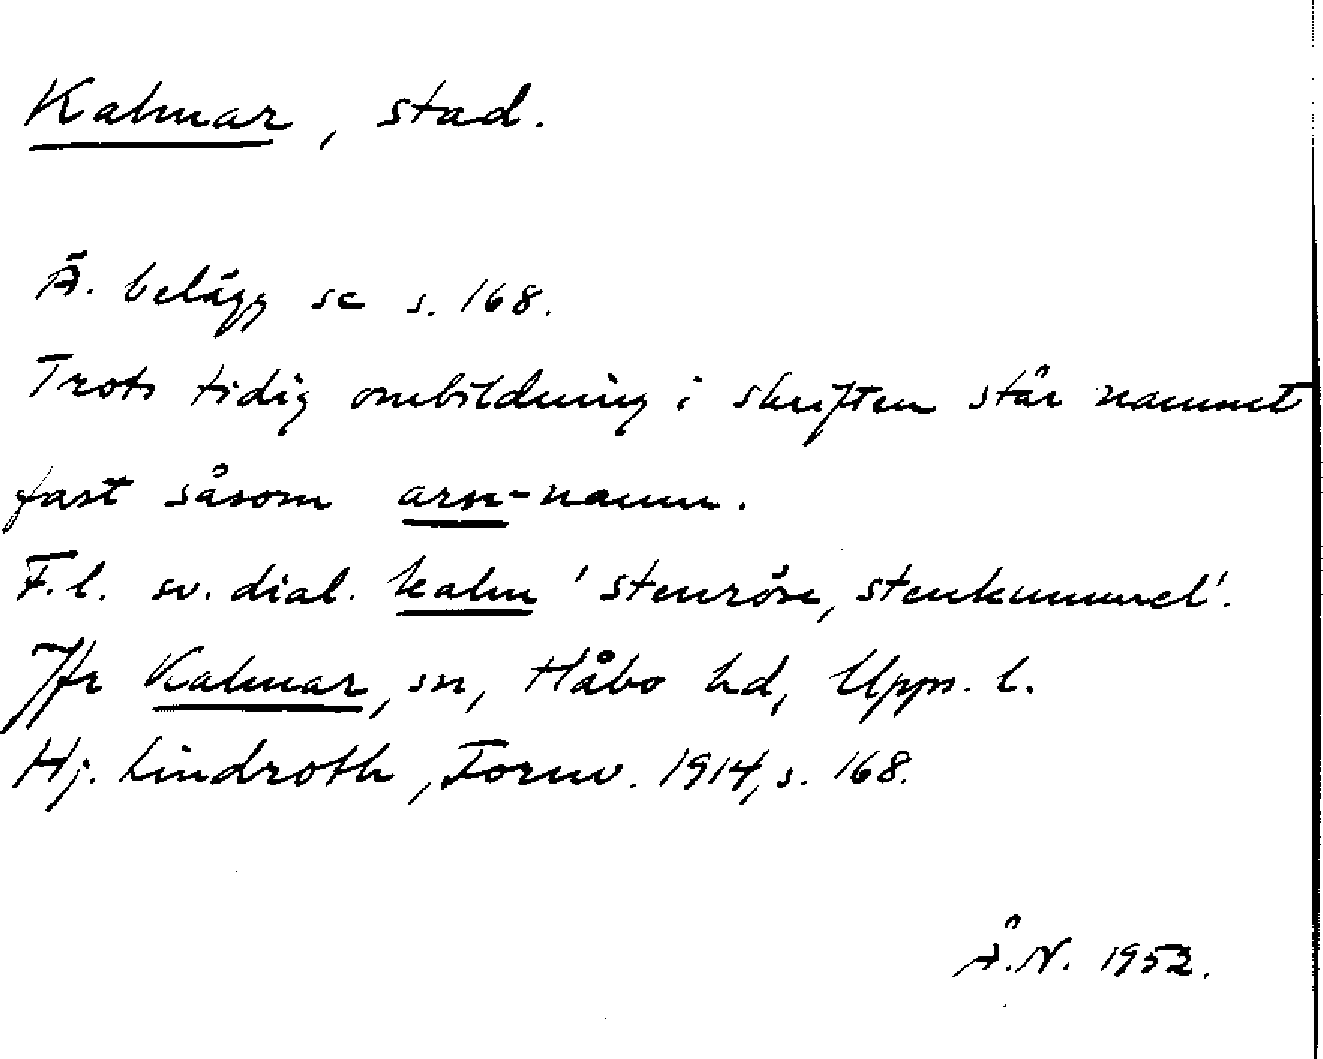 Kalmar, stad.
Ä. belägg se s. 168.
Trots tidig ombildning i skriften står namnet
fast såsom arn-namn.
F.l. sv. dial. kalm 'stenröse, stenkummel'.
Jfr Kalmar, sn, Håbo hd, Upps. l.
Hj. Lindroth, Fornv. 1914, s. 168.
Å.N. 1952.